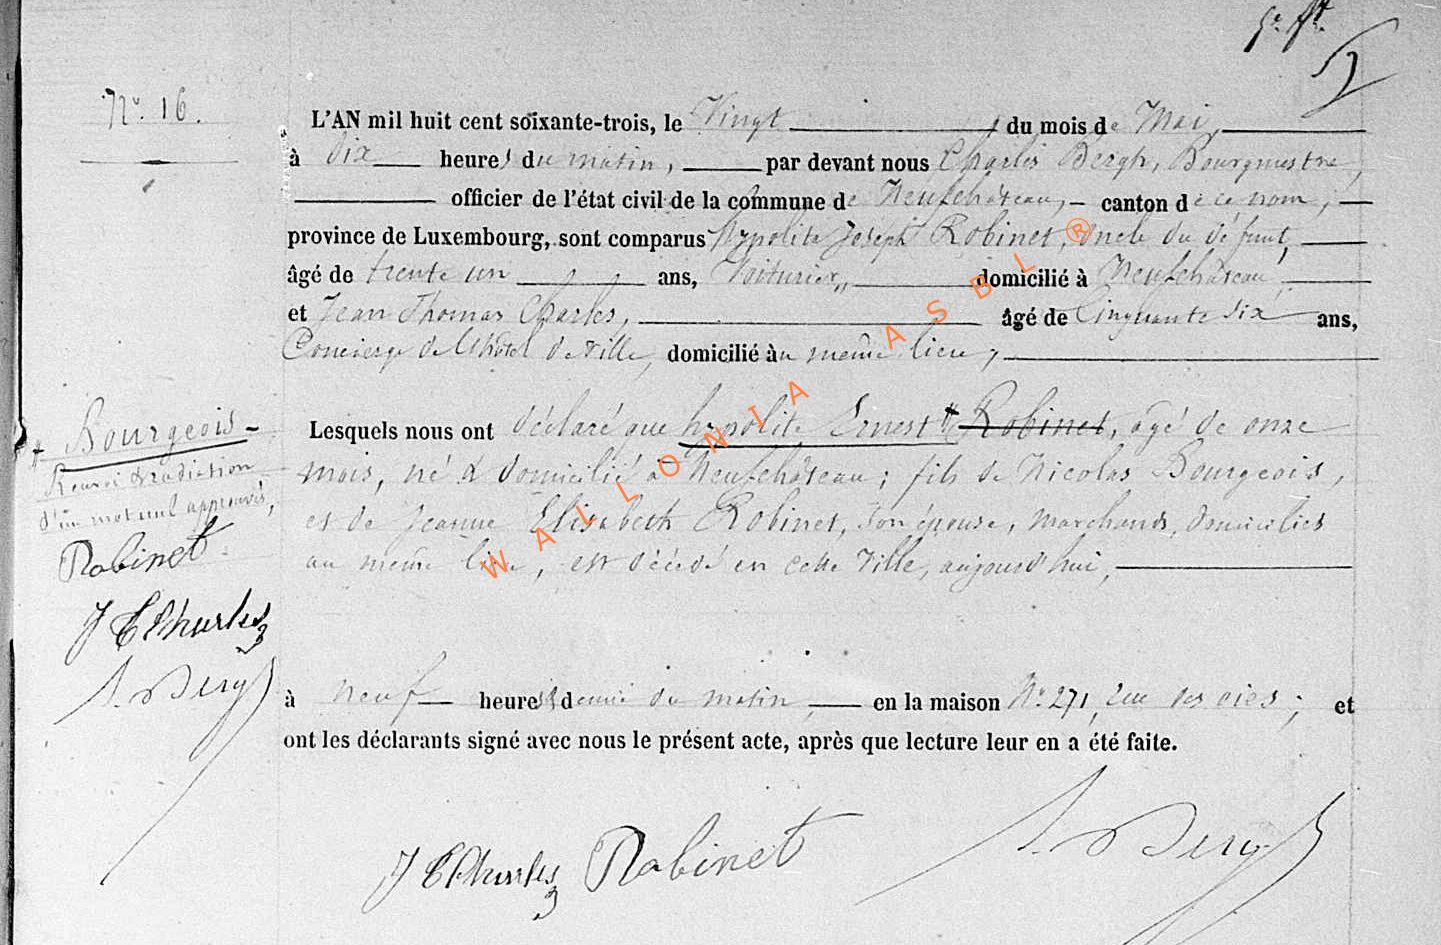 5e ft.
N°. 16.
L'AN mil huit cent soixante-trois, le Vingt du mois de Mai,
à dix heures du matin, par devant nous Charles Bergh, Bourgmestre,
officier de l'état civil de la commune de Neufchâteau, canton de ce nom,
province de Luxembourg, sont comparus hypolite Joseph Robinet, oncle du défunt,
âgé de trente un ans, Voiturier, domicilié à Neufchâteau,
et Jean Thomas Charles, âgé de Cinquante six ans,
Concierge de l'hôtel de ville, domicilié au même lieu,
Lesquels nous ont déclaré que hypolite Ernest + Robinet, agé de onze
mois, né & domicilié à Neufchâteau; fils de Nicolas Bourgeois,
et de Jeanne Elisabeth Robinet, son épouse, marchands, domiciliés
au même lieu, est décédé en cette ville, aujourd'hui,
à neuf heures & demie du matin, en la maison N° 271, rue des oies; et
ont les déclarants signé avec nous le présent acte, après que lecture leur en a été faite.
+ Bourgeois -
Renvoi & radiation
d'un mot nul approuvés,
Robinet
J T Charles
J T Charles Robinet
WALLONIA ASBL ®